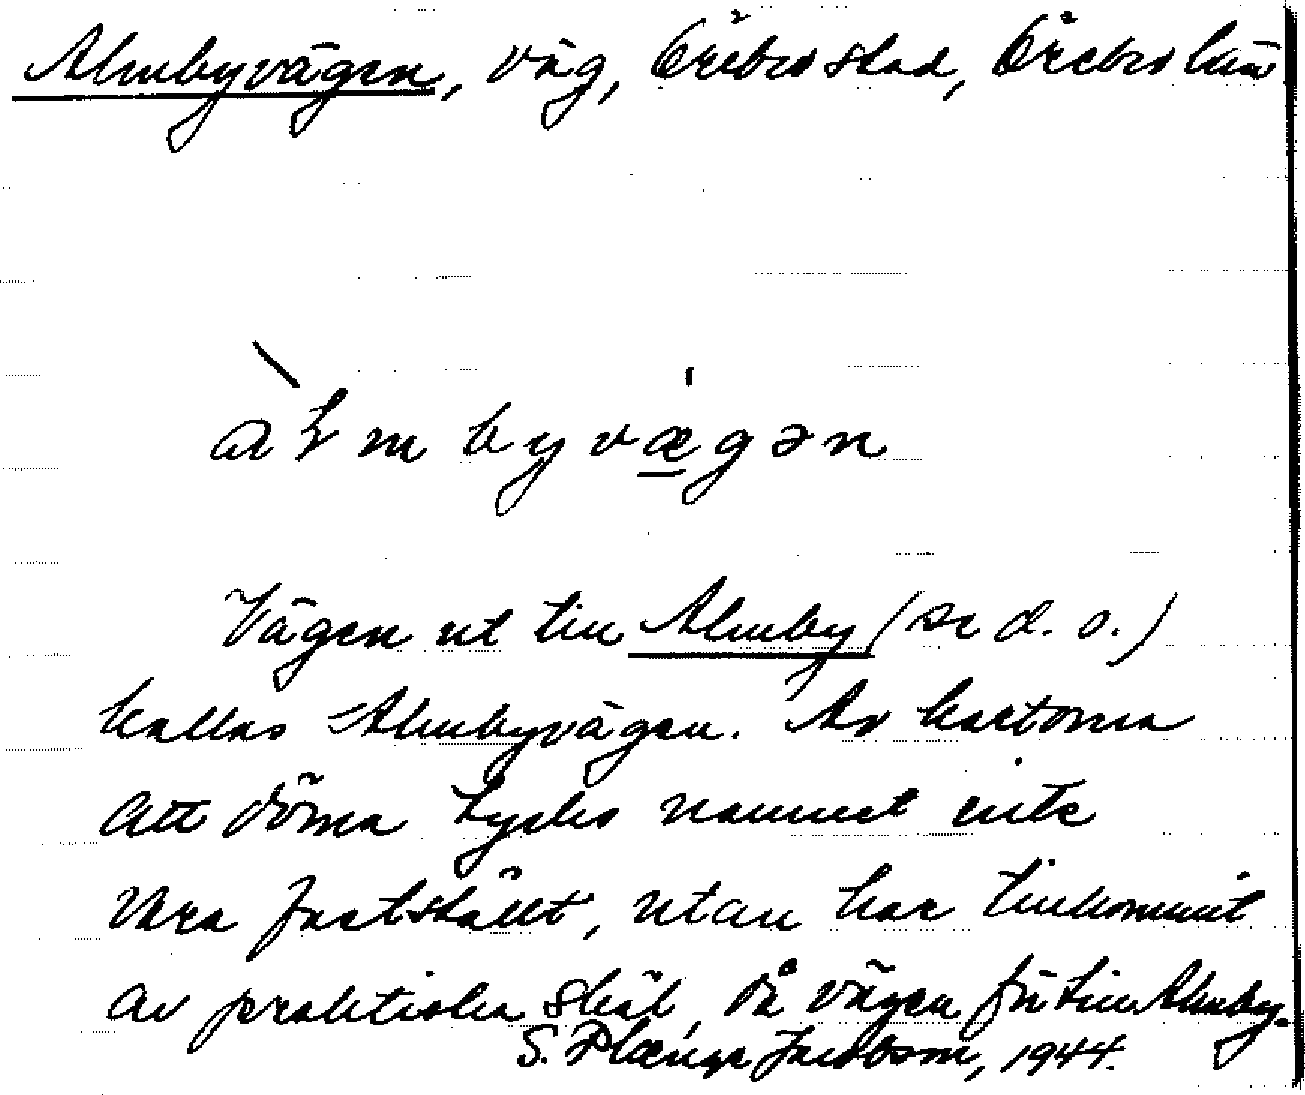 Almbyvägen, väg, Örebro stad, Örebro län
aꞎmbyvægən
Vägen ut till Almby (se d. o.)
kallas Almbyvägen. Av kartorna
att döma tycks namnet inte
vara fastställt, utan har tillkommit
av praktiska skäl, då vägen för till Almby.
S. Plænge Jacobson, 1944.